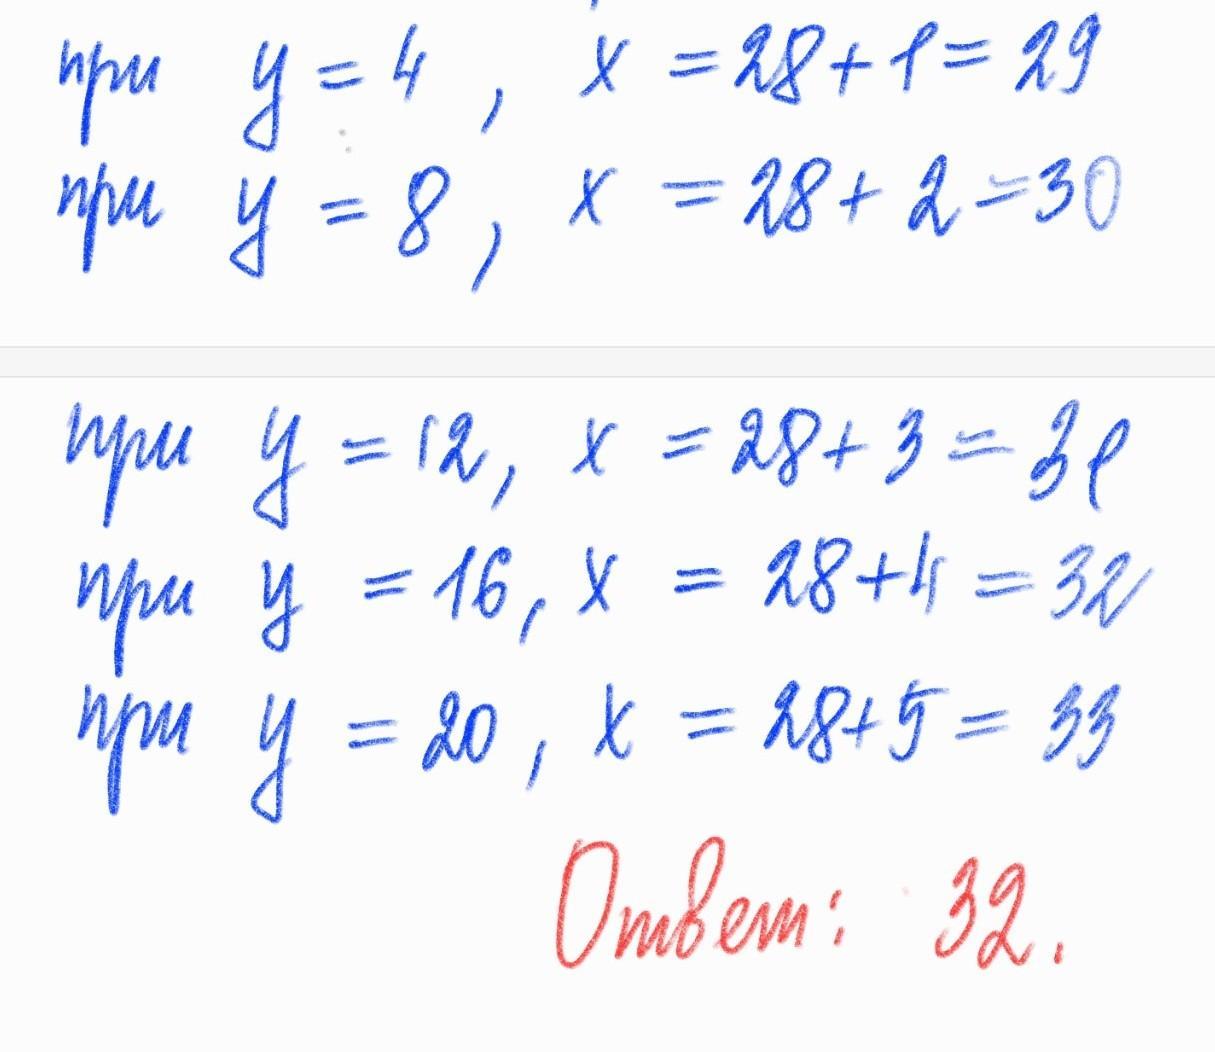 при y = 4, x = 28 + 1 = 29
при y = 8, x = 28 + 2 = 30
при y = 12, x = 28 + 3 = 31
при y = 16, x = 28 + 4 = 32
при y = 20, x = 28 + 5 = 33
Ответ: 32.